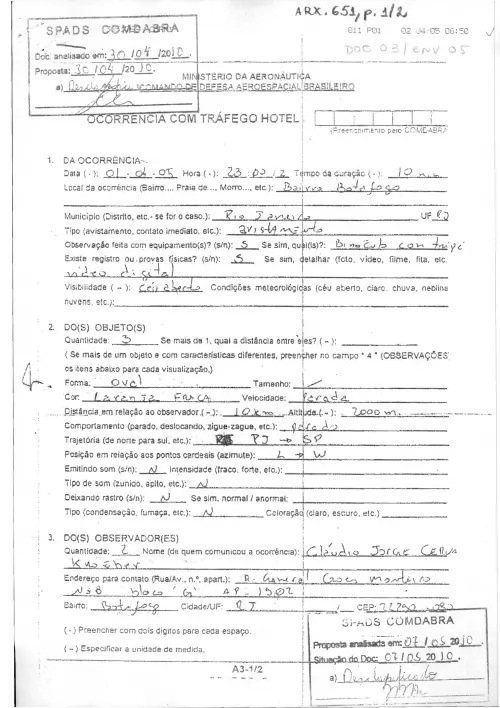 ARX. 651, p. 1/2
SPADS COMDABRA
011 P01 02/04/05 06:50
DOC 03/ENV 05
Doc. analisado em: 30/04/2010.
Proposta: 30/04/2010.
a) Desclassificado
MINISTÉRIO DA AERONÁUTICA
COMANDO DE DEFESA AEROESPACIAL BRASILEIRO
OCORRÊNCIA COM TRÁFEGO HOTEL
(Preenchimento pelo COMDABRA)
1. DA OCORRÊNCIA
Data (·): 01-04-05 Hora (·): 23:00 Z Tempo da duração (·): 10 min
Local da ocorrência (Bairro..., Praia de..., Morro..., etc.): Bairro Botafogo
Município (Distrito, etc.- se for o caso.): Rio Janeiro UF RJ
Tipo (avistamento, contato imediato, etc.): avistamento
Observação feita com equipamento(s)? (s/n): S Se sim, qual(is)?: Binóculo com tripé
Existe registro ou provas físicas? (s/n): S Se sim, detalhar (foto, vídeo, filme, fita, etc.
vídeo digital
Visibilidade (~): Céu aberto Condições meteorológicas (céu aberto, claro, chuva, neblina
nuvens, etc.):
2. DO(S) OBJETO(S)
Quantidade: 3 Se mais de 1, qual a distância entre eles? (~):
( Se mais de um objeto e com características diferentes, preencher no campo " 4 " (OBSERVAÇÕES)
os itens abaixo para cada visualização.)
Forma: Oval Tamanho:
Cor: Laranja Fraca Velocidade: Parada
Distância em relação ao observador (~): 10 km Altitude (~): 2000 m
Comportamento (parado, deslocando, zigue-zague, etc.): parado
Trajetória (de norte para sul, etc.): RJ → SP
Posição em relação aos pontos cardeais (azimute): L → W
Emitindo som (s/n): N Intensidade (fraco, forte, etc.):
Tipo de som (zunido, apito, etc.): N
Deixando rastro (s/n): N Se sim, normal / anormal:
Tipo (condensação, fumaça, etc.): N Coloração (claro, escuro, etc.)
3. DO(S) OBSERVADOR(ES)
Quantidade: 2 Nome (de quem comunicou a ocorrência): Cláudio Jorge
Endereço para contato (Rua/Av., n.º, apart.): R. General Góes Monteiro
Nº 8 bloco 'G' AP - 1502
Bairro: Botafogo Cidade/UF: RJ CEP: 22290-080
(·) Preencher com dois dígitos para cada espaço.
(~) Especificar a unidade de medida.
SPADS COMDABRA
Proposta analisada em: 07/05 2010
Situação do Doc: 07/05 2010.
a) Desclassificado
A3-1/2